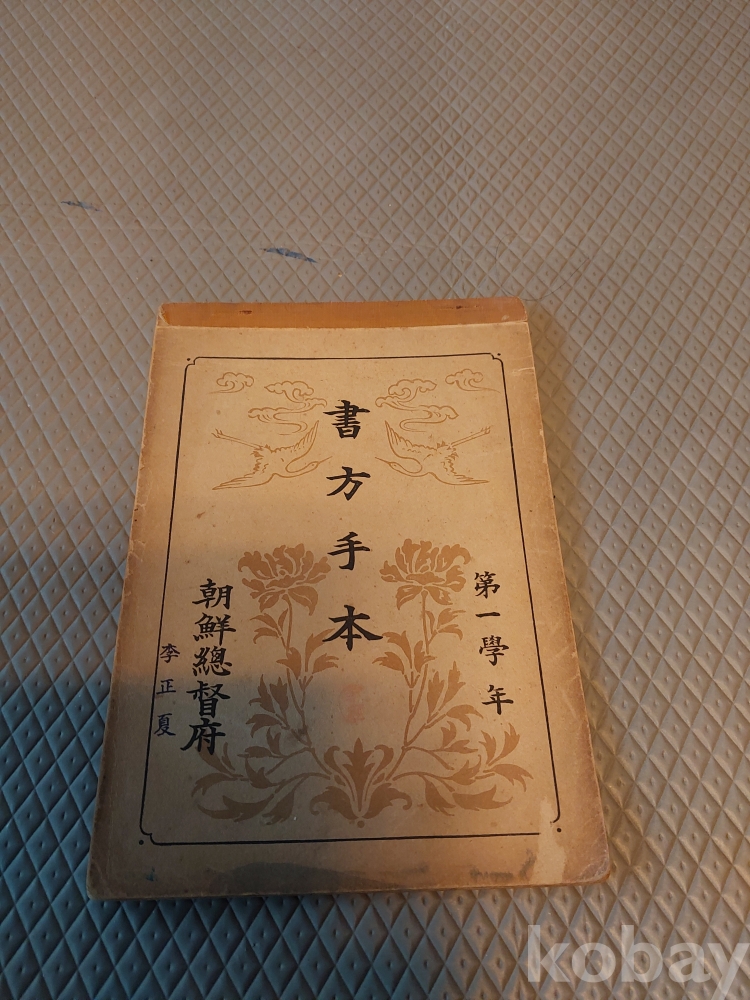 第一學年
書方手本
朝鮮總督府
李正夏
kobay